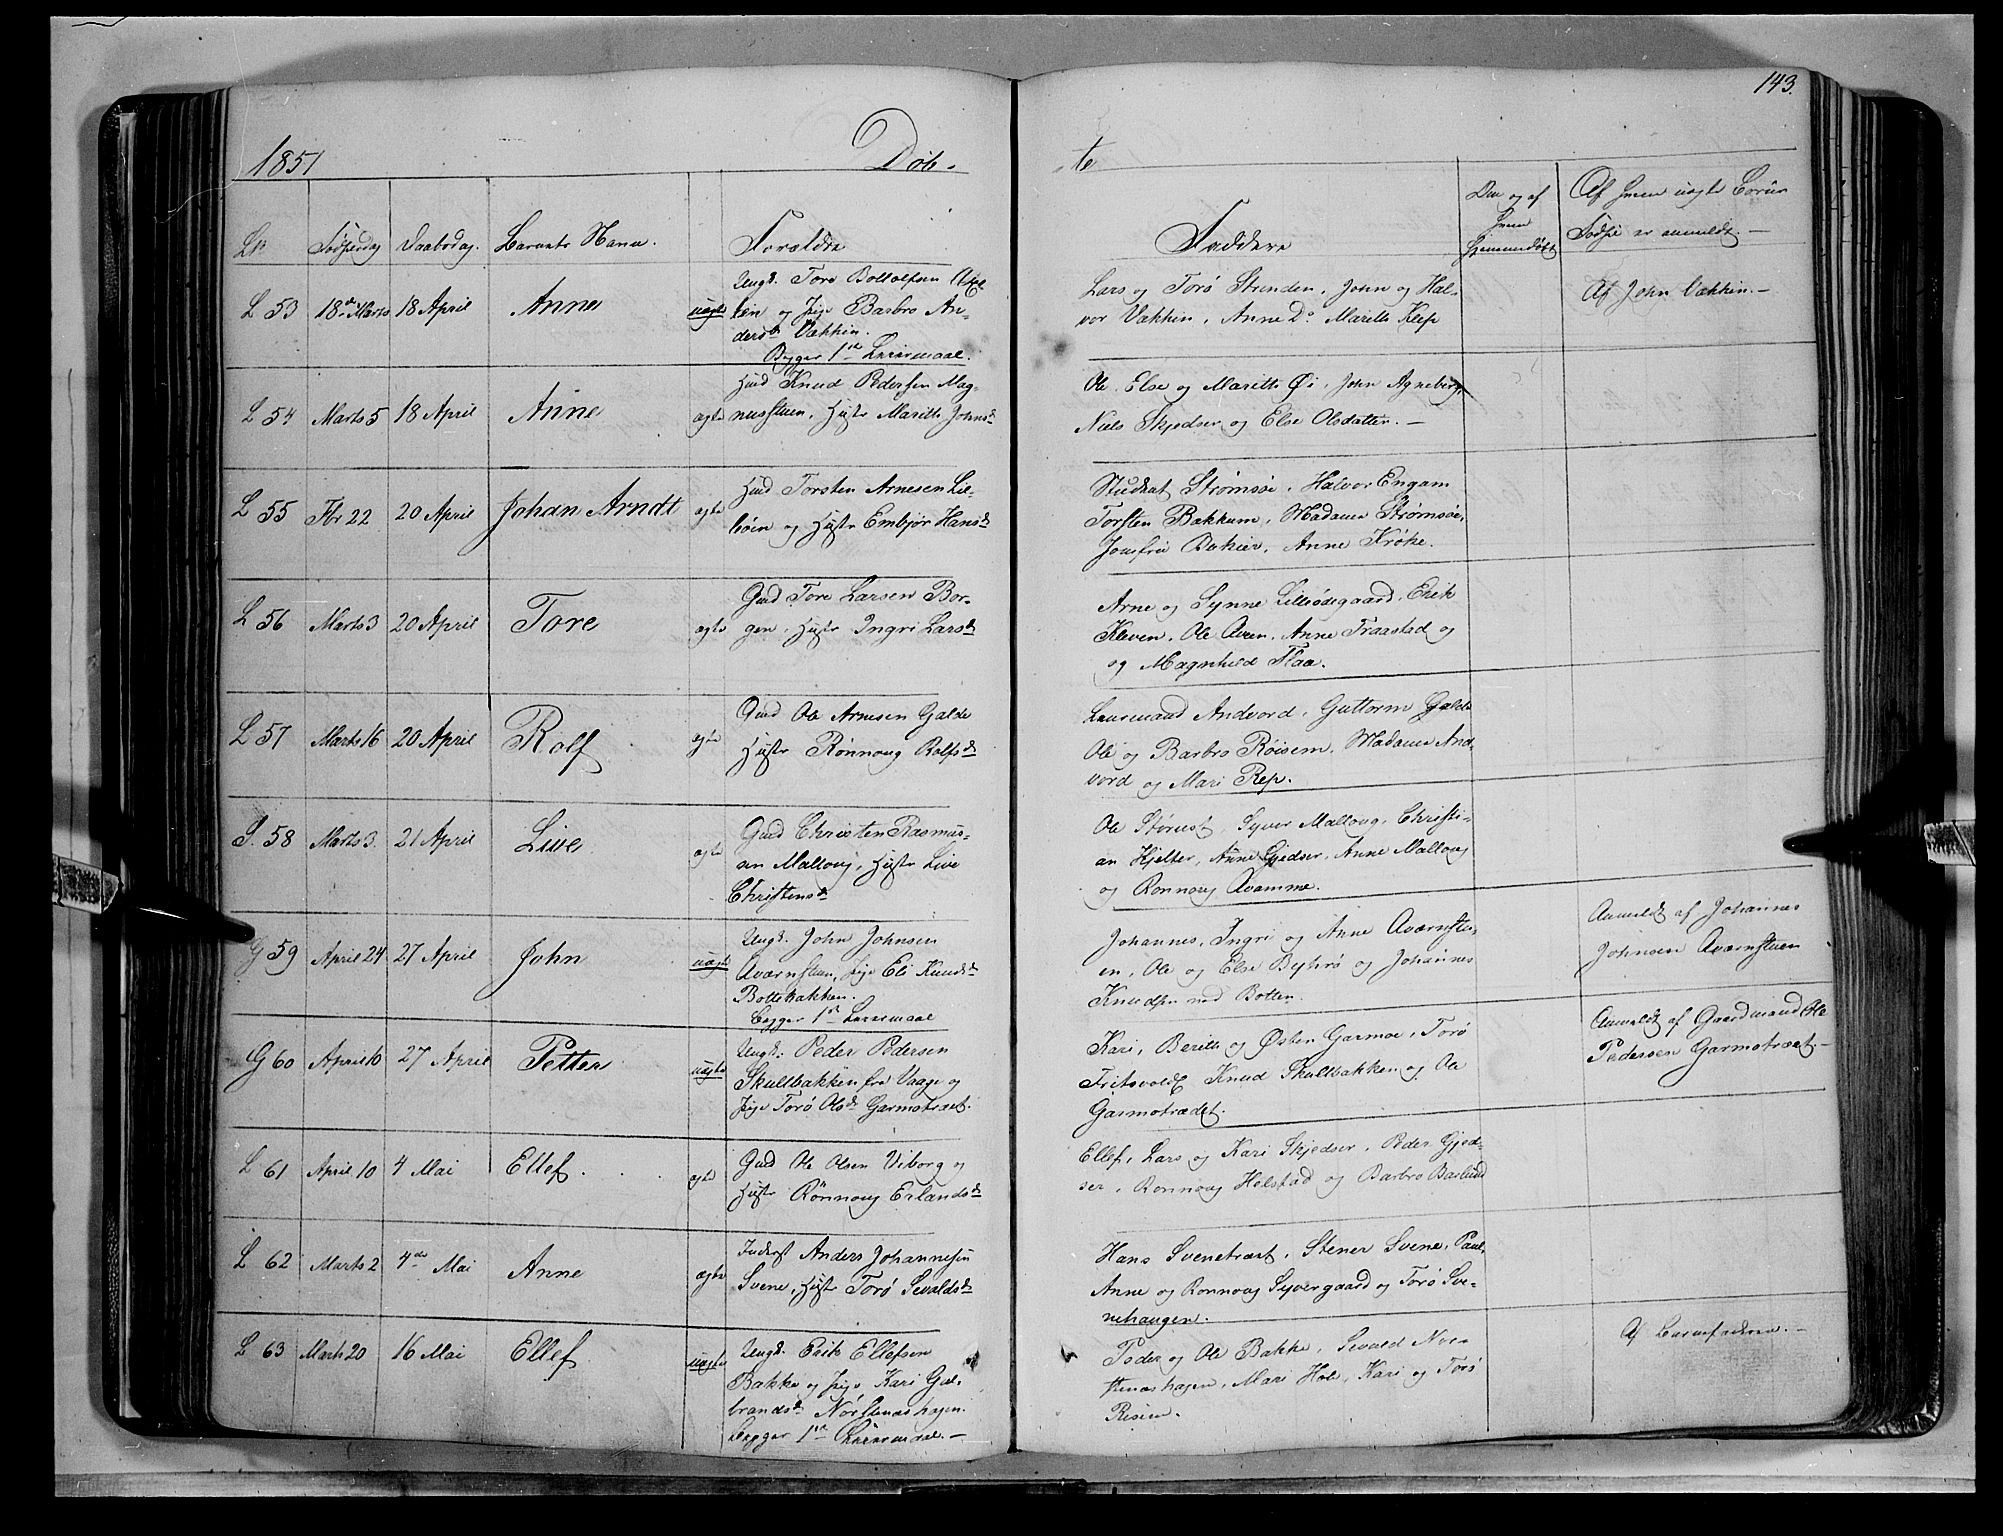 143.
1851 Døb-
-te
No Fødselsdag Daabsdag. Barnets Navn. Forældre
Faddere
Om og af
hvem
hjemmedøbt
Af hvem uægte Børns
Fødsel er anmeldt. —
L 53 18de Marts 18 April Anne uægte
Ungk. Tore Bottolfsen
og Pige Barbro An-
dersd. Vækkin.
Begges 1ste Leiermaal.
Lars og Torø Stranden, John og Hal-
vor Vækkin, Anne Do Marith Klep
Af John Vækkin. —
L 54 Marts 5 18 April Anne ægte
Huusm. Knud Pedersen Mag-
nusstuen, Hustr Marith Johnsd.
Ole, Else og Marith Øi, John Agneberg,
Niels Skjedser og Else Olsdatter. —
L 55 Fbr 22 20 April Johan Arndt ægte
Huusm. Torsten Arnesen Lil-
leøen og Hustr Embjør Hansd.
Strømsøe, Halvor Engam
Torsten Bakkum, Madame Strømsøe,
Jomfru Anne Krøke.
L 56 Marts 3 20 April Tore ægte
Gmd Tore Larsen Bor-
gen, Hustr Ingri Larsd.
Arne og Synne Lilleødegaard, Erik
Kleven, Ole Øren, Anne Traastad og
og Magnhild Flaa.
L 57 Marts 16 20 April Rolf ægte
Gmd Ole Arnesen Galde
Hustr Rønnoug Rolfsd.
Lensmand Andvord, Guttorm Galde
Ole og Barbro Røisem, Madame And-
vord og Mari Rep.
S. 58 Marts 3. 21 April Live ægte
Gmd Christen Rasmus-
sen Malloug, Hustr Live
Christensd.
Ole Størvest, Syver Malloug, Christi-
an Hjelter, Anne Gjedser, Anne Malloug
og Ronnoug Qvamme.
G 59 April 24 27 April John uægte
Ungk. John Johnsen
Qværnstuen, Pige Eli Knudsd.
Bottebakken.
Begges 1ste Leiermaal
Johannes, Ingri og Anne Qværnstu-
en, Ole og Else Byhrø og Johannes
Knudsen ned Botten.
Anmeldt af Johannes
Johnsen Qværnstuen
G 60 April 10 27 April Petter uægte
Ungk. Peder Pedersen
Skultbakken fra Vaage og
Pige Torø Olsd. Garmotræet.
Kari, Berith og Østen Garmoe, Torø
Fritsvold, Knud Skultbakken og Ole
Garmotrædet.
Anmeldt af Gaardmand Ole
Pedersen Garmotræet —
L 61 April 10 4 Mai Ellef. ægte
Gmd Ole Olsen Viborg og
Hustr Rønnoug Erlandsd.
Ellef, Lars og Kari Skjedser, Peder Gjed-
ser, Ronnoug Helstad og Barbro Barlund
L 62 Marts 2 4de Mai Anne ægte
Inderst Anders Johannesen
Svene, Hustr Torø Sevaldsd.
Hans Svenetræet, Stener Svene, Paul,
Anne og Ronnoug Syvergaard og Torø Sve-
nehaugen.
L 63 Marts 20 16 Mai Ellef uægte
Ungk. Erik Ellefsen
Bakke og Pige Kari Gul-
brandsd. Norstenæshagen.
Begges 1ste Leiermaal. —
Peder og Ole Bakke, Sevald Nor-
stenæshagen, Mari Hole, Kari og Torø
Risem.
Af Barnefaderen. —